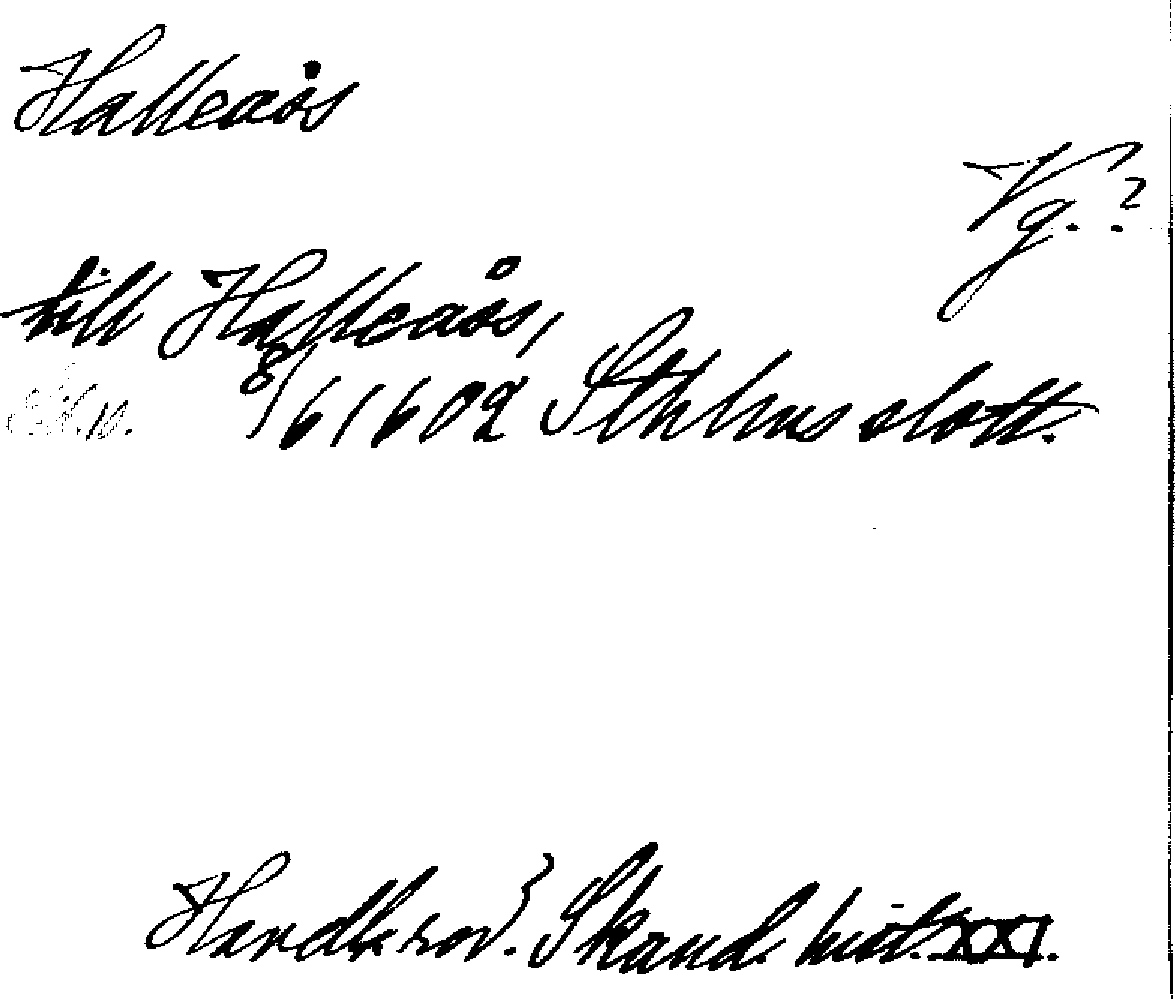 Halleaås
Vg.?
till Halleaås,
8/6 1602 Sthlms slott.
Handl. rör. Skand. hist. XXI.